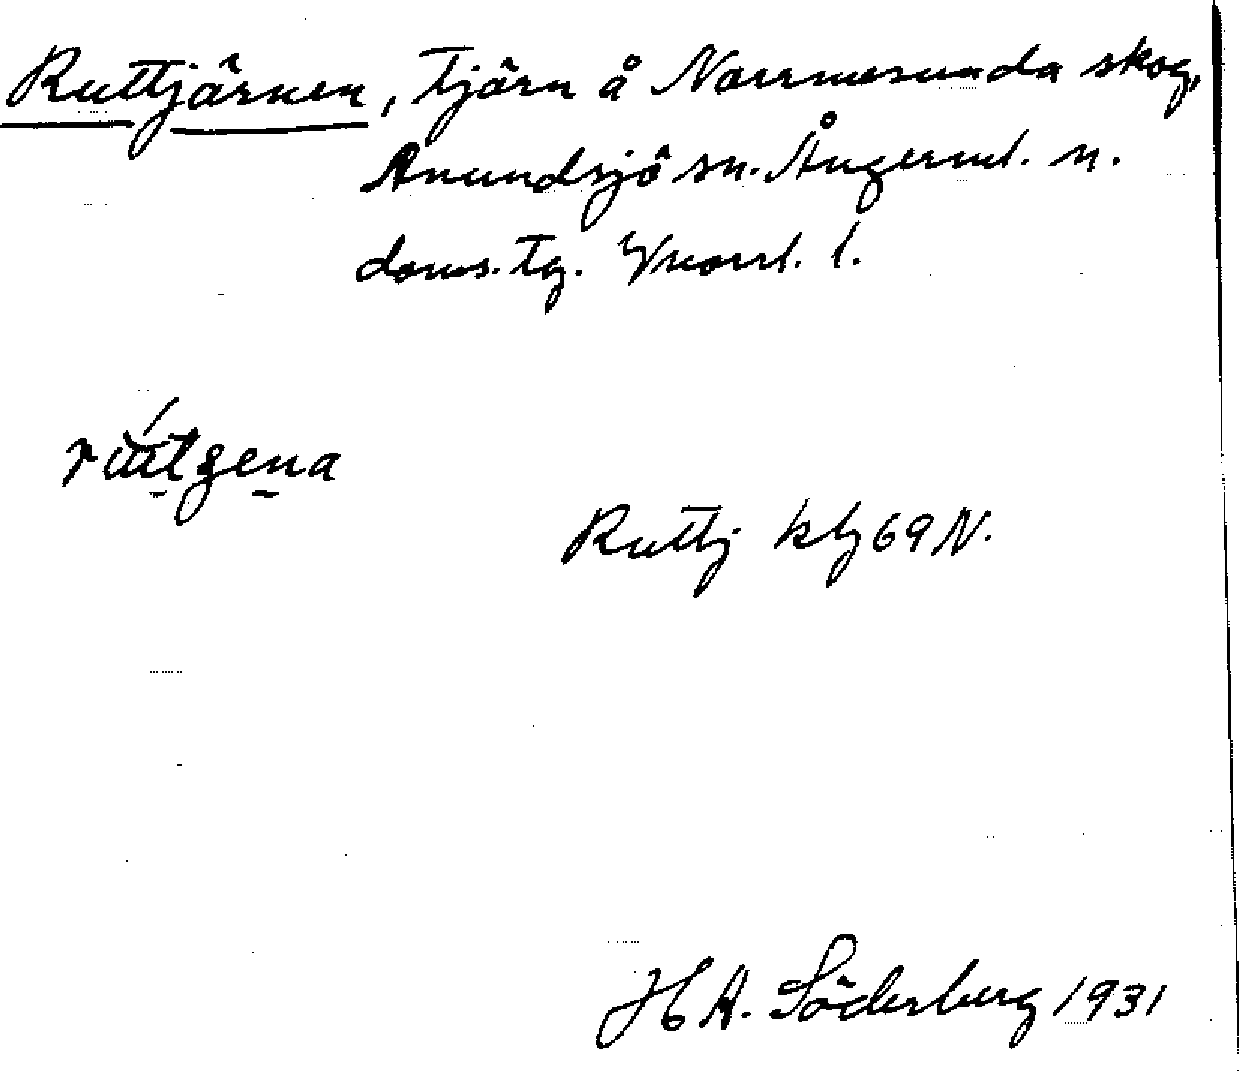 Ruttjärnen, Tjärn å Norrmesunda skog,
Anundsjö sn. Ångerml. n.
doms. Tg. Vnorrl. l.
Ruttj kbl 69 N.
H A. Söderberg 1931